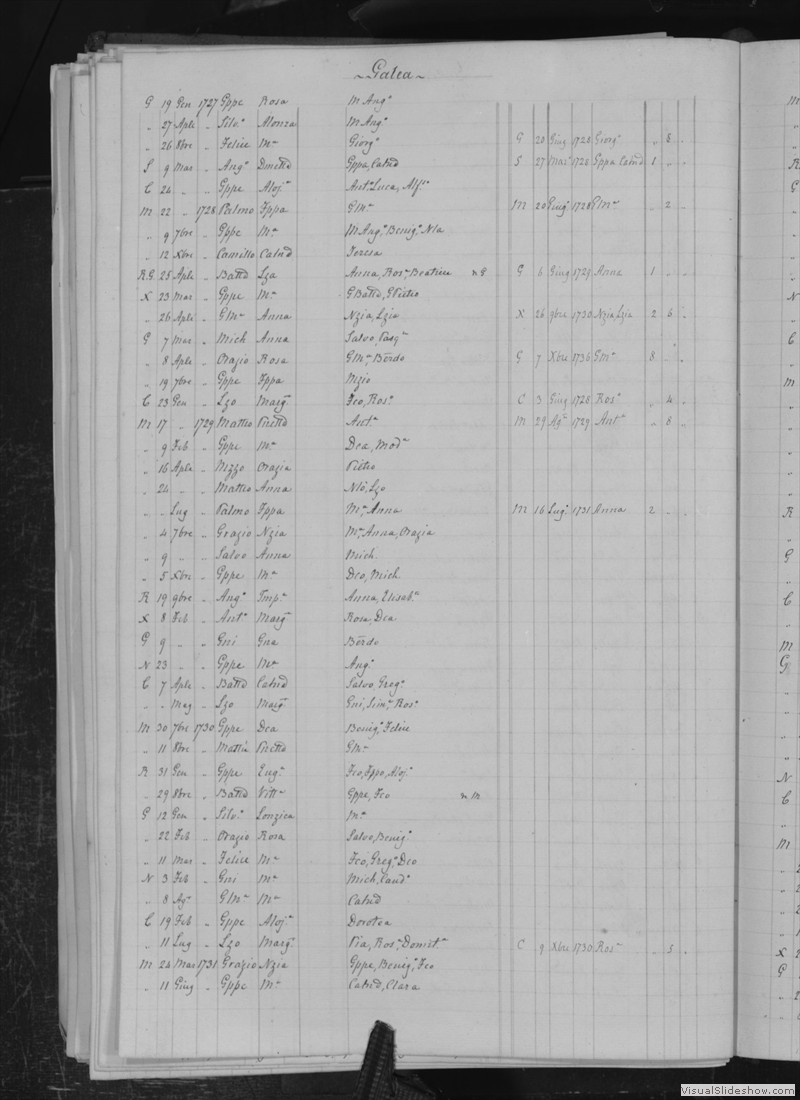 ~Galea~
G 19 Gen 1727 Gppe Rosa M Angª
„ 27 Aple „ Silvº Alonza M Angª
„ 26 8bre „ Felice Mª Giorgº G 20 Giug 1728 Giorgº „ 8 „
S 9 Mar „ Angº Dmettd Gppa, Catnd S 27 Marº 1728 Gppa Catnd 1 „ „
C 24 „ „ Gppe Alojª Antº Luca, Alfº
M 22 „ 1728 Palmo Fppa GMª M 20 Giugº 1728 GMª „ 2 „
„ 9 7bre „ Gppe Mª M Angª, Benigª, Nla
„ 12 Xbre „ Camillo Catnd Teresa
R.G 25 Aple „ Battd Lza Anna, Rosª Beatrice n G G 6 Giug 1729 Anna 1 „ „
X 23 Mar „ Gppe Mª GBattd, GPietro
„ 26 Aple „ GMª Anna Nzia, Lzia X 26 9bre 1730 Nzia Lzia 2 6 „
G 7 Mar „ Mich Anna Salvo, Pasqª
„ 8 Aple „ Orazio Rosa GMª, Berdo G 7 Xbre 1736 GMª 8 „ „
„ 19 7bre „ Gppe Fppa Nzio
C 23 Gen „ Lzo Margª Fco, Rosª C 3 Giug 1728 Rosª „ 4 „
M 17 „ 1729 Matteo Prettd Antª M 29 Agº 1729 Antª „ 8 „
„ 9 Feb „ Gppe Mª Dea, Modª
„ 16 Aple „ Nizzo Orazia Pietro
„ 24 „ „ Matteo Anna Nlo, Lzo
„ „ Lug „ Palmo Fppa Mª, Anna M 16 Lugº 1731 Anna 2 „ „
„ 4 7bre „ Grazio Nzia Mª, Anna, Orazia
„ 9 „ „ Salvo Anna Mich
„ 5 Xbre „ Gppe Mª Dco, Mich
R 19 9bre „ Angº Impª Anna, Elisabª
X 8 Feb „ Antº Margª Rosa, Dea
G 9 „ „ Gni Gna Berdo
N 23 „ „ Gppe Mª Angº
C 7 Aple „ Battd Catnd Salvo, Gregº
„ „ Mag „ Lzo Margª Gni, Simª, Rosª
M 30 7bre 1730 Gppe Dea Benigº, Felice
„ 11 8bre „ Mattia Prettd GMª
R 31 Gen „ Gppe Eugª Fco, Fppo, Alojº
„ 29 8bre „ Battd Vittª Gppe, Fco n M
G 12 Gen „ Silvº Lonzica Mª
„ 22 Feb „ Orazio Rosa Salvo, Benigº
„ 11 Mar „ Felice Mª Fco, Gregº, Dco
N 3 Feb „ Gni Mª Mich, Candª
„ 8 Agº „ GMª Mª Catnd
C 19 Feb „ Gppe Alojª Dorotea
„ 11 Lug „ Lzo Margª Pia, Rosª, Domitª C 9 Xbre 1730 Rosª „ 5 „
M 24 Mar 1731 Grazio Nzia Gppe, Benigº, Fco
„ 11 Giug „ Gppe Mª Catnd, Clara
VisualSlideshow.com